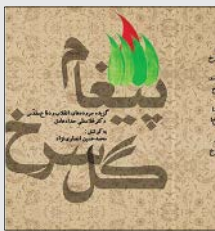 پیغام
گزیده سروده‌های انقلاب و دفاع مقدس
دکتر غلامعلی حدادعادل
به کوشش:
محمدحسین انصاری‌نژاد
گل سرخ